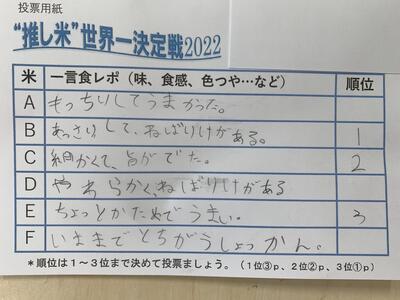 投票用紙
“推し米”世界一決定戦2022
米 一言食レポ（味、食感、色つや…など） 順位
A もっちりしてうまかった。
B あっさりして、ねばりけがある。 1
C 細かくて、旨がでた。 2
D やわらかく、ねばりけがある
E ちょっとかためでうまい。 3
F いままでとちがうしょっかん。
＊順位は１～３位まで決めて投票しましょう。（１位③ｐ、２位②ｐ、３位①ｐ）